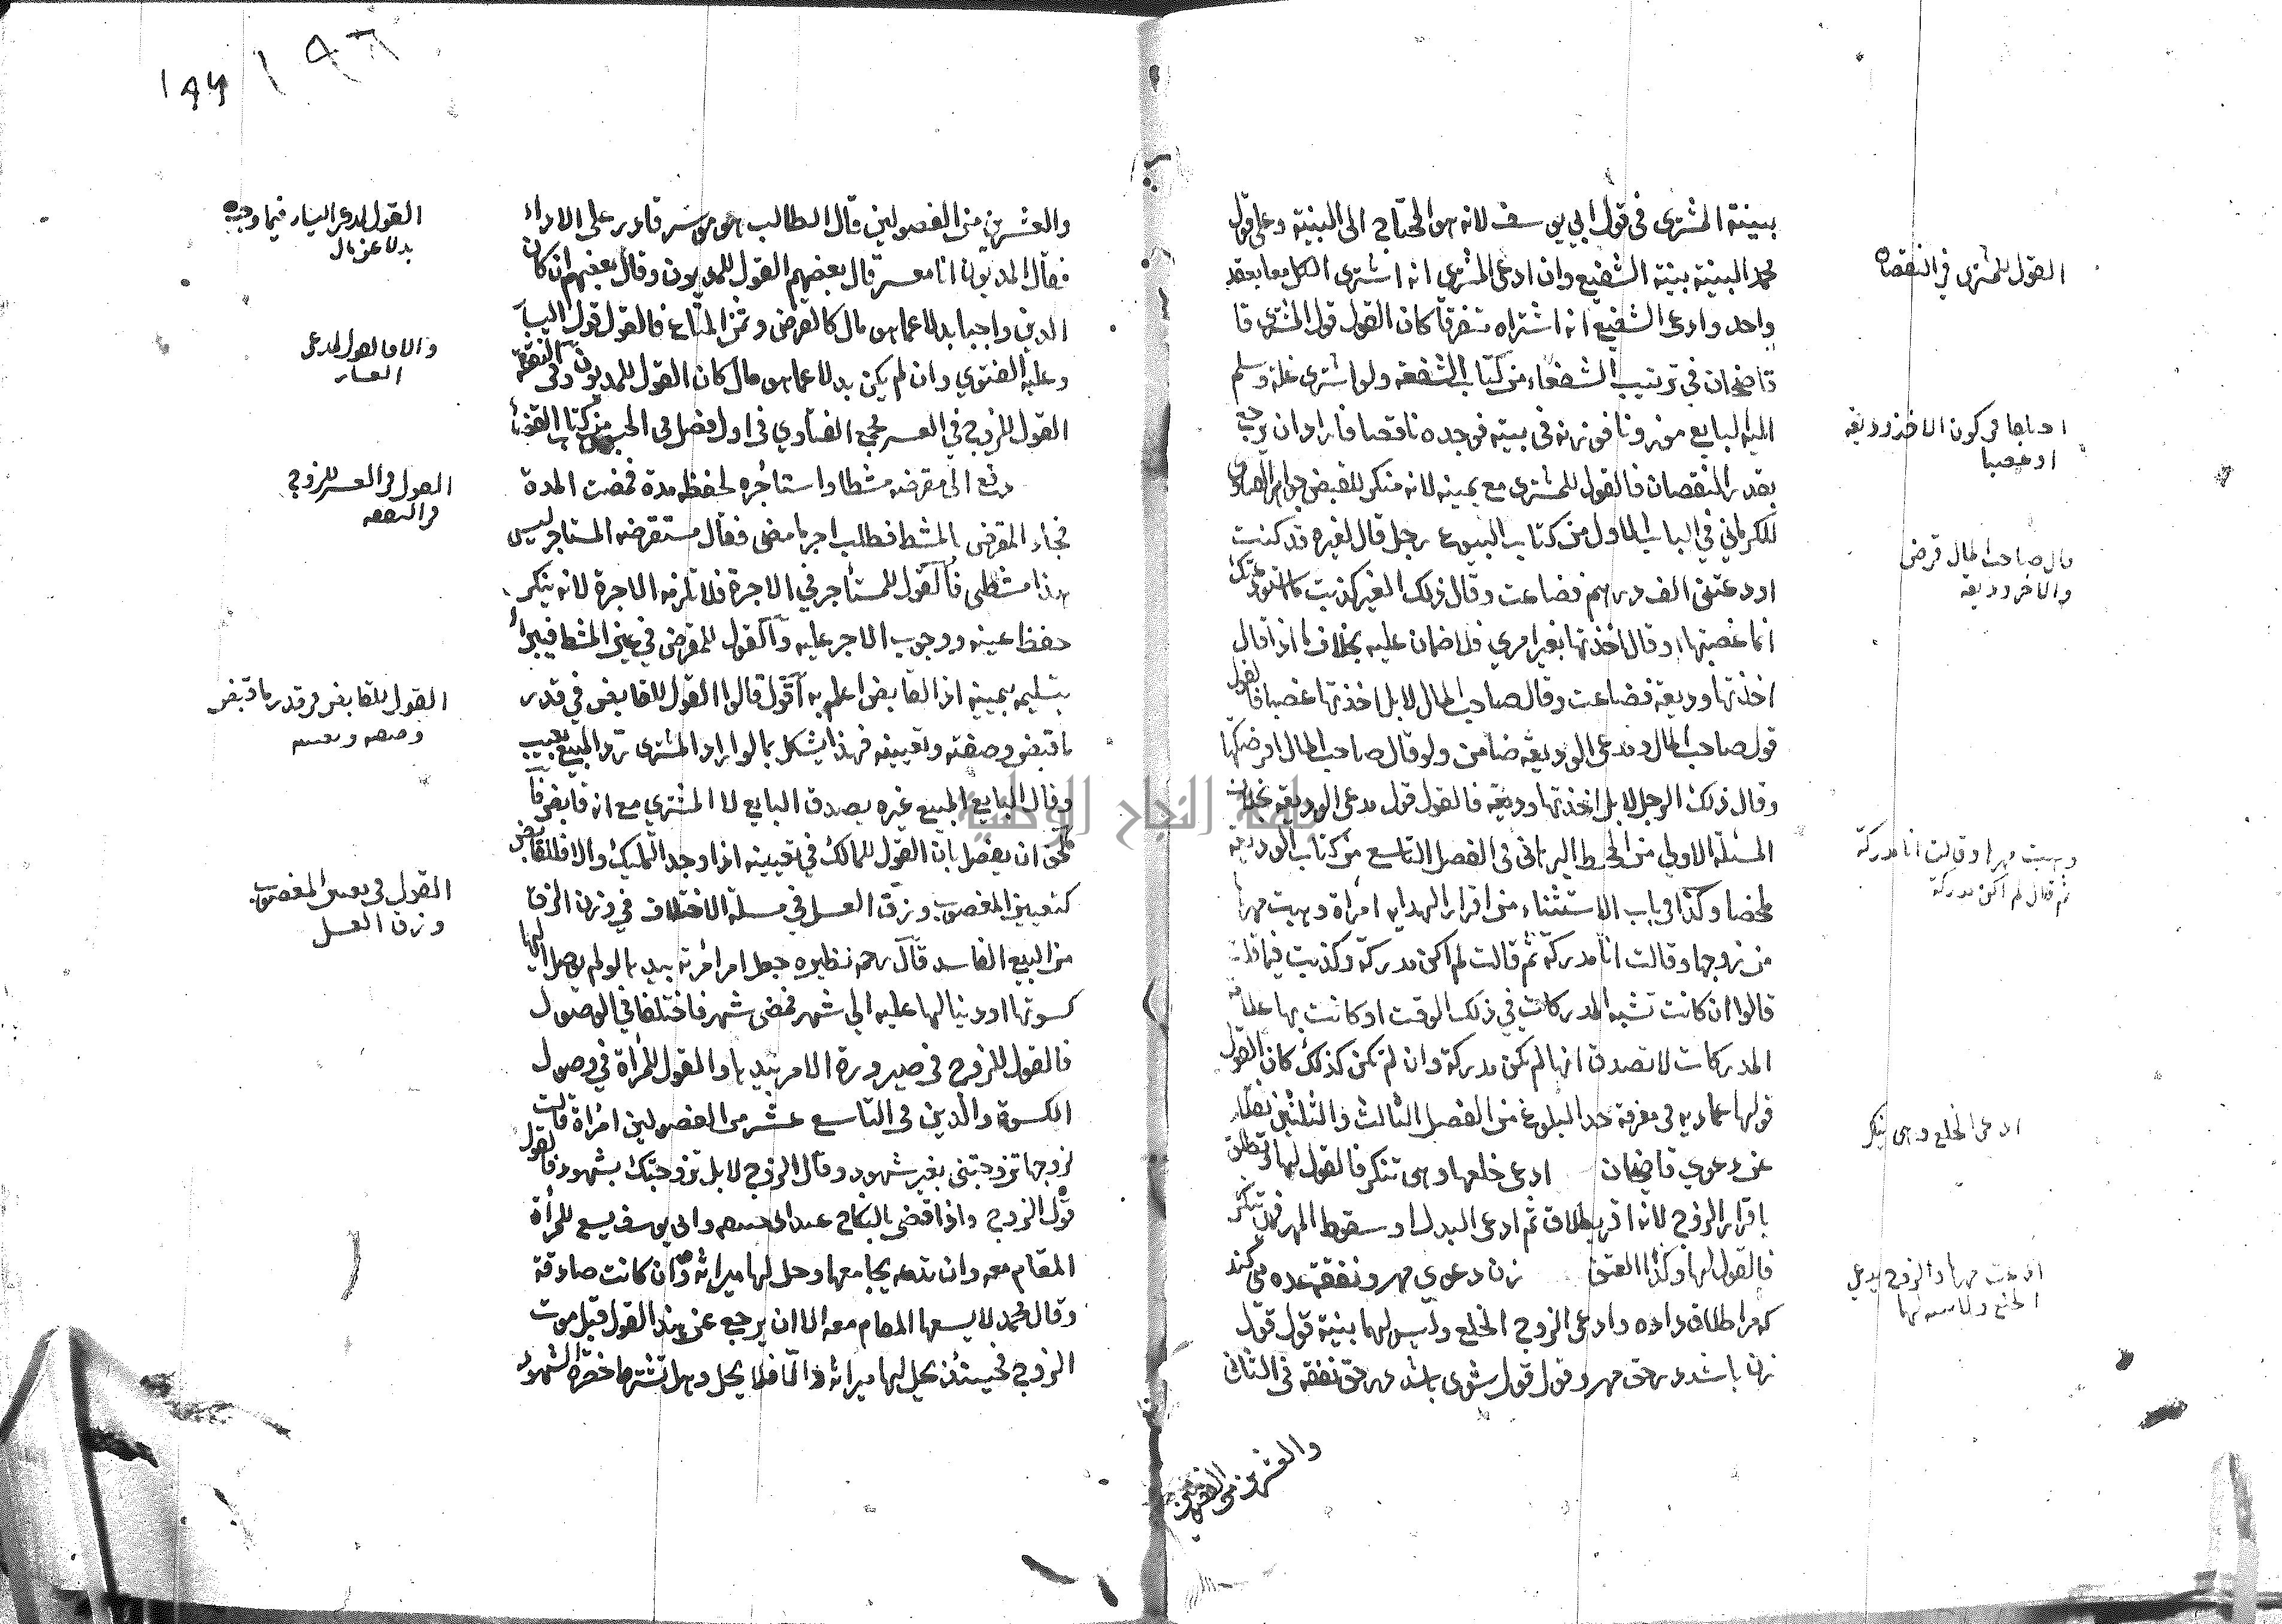 بينة المشترى فى قول ابي يوسف لانه هو المحتاج الى البينة وعلى قول
محمد البينة بينة الشفيع وان ادعى المشترى انه اشترى الكل معا بعقد
واحد وادعى الشفيع انه اشتراه متفرقا كان القول قول المشترى قا
قاضخان فى ترتيب الشفعاء من كتاب الشفعة ولو اشترى غلة وسلم
اليه البايع موزونا فوزنه فى بيته فوجده ناقصا فاراد ان يرجع
بقدر النقصان فالقول للمشترى مع يمينه لانه منكر للقبض جواهر الفتاوى
للكرماني في الباب الاول من كتاب البيوع رجل قال لغيره قد كنت
اودعتنى الف درهم فضاعت وقال ذلك الغير كذبت ما اودعتك
انما غصبتها او قال اخذتها بغير امري فلا ضمان عليه بخلاف ما اذا قال
اخذتها وديعة فضاعت وقال صاحب المال لا بل اخذتها غصبا فالقول
قول صاحب المال ومدعى الوديعة ضامن ولو قال صاحب المال اقرضتكها
وقال ذلك الرجل لا بل اخذتها وديعة فالقول قول مدعى الوديعة بخلاف
المسئلة الاولى من المحيط البرهانى فى الفصل التاسع من كتاب الوديعة
ملخصا وكذا فى باب الاستثناء من اقرار الهدايه امرأة وهبت مهرها
من زوجها وقالت انا مدركة ثم قالت لم اكن مدركة وكذبت فيما قلت
قالوا ان كانت تشبه المدركات في ذلك الوقت او كانت بها علامة
المدركات لا تصدق انها لم تكن مدركة وان لم تكن كذلك كان القول
قولها عماديه فى معرفة حد البلوغ من الفصل الثالث والثلثين نقلا
عن دعوي قاضخان ادعى خلعها وهى تنكر فالقول لها وتطلق
باقرار الزوج لانه اقر بطلاق ثم ادعى البدل او سقوط المهر فهى تنكر
فالقول لها وكذا العتق زن دعوي مهر ونفقة عده مى كند
كه مرا طلاق داده وادعى الزوج الخلع وليس لهما بينة قول قول
زن باشد در حق مهر وقول قول شوى باشد در حق نفقه فى الثانى
والعشرين من الفصولين
القول للمشترى فى النقصان
اختلفا فى كون الاخذ وديعة
او غصبا
قال صاحب المال قرض
والاخر وديعة
وهبت مهرها وقالت انا مدركة
ثم قالت لم اكن مدركة
ادعى الخلع وهى تنكر
ادعت مهرها والزوج يدعى
الخلع ولا بينة لهما
١٩٦
١٩٦
والعشرين من الفصولين قال الطالب هو موسر قادر على الاداء
فقال المديون انا معسر قال بعضهم القول للمديون وقال بعضهم ان كان
الدين واجبا بدلا عما هو مال كالقرض وثمن المتاع فالقول قول
وعليه الفتوي وان لم يكن بدلا عما هو مال كان القول للمديون وفى النفقة
القول للزوج في العسر مجمع الفتاوي فى اول فصل فى الحبس من كتاب القضاء
دفع الى مقرضه مشطا واستأجره لحفظه مدة فمضت المدة
فجاء المقرض بالمشط فطلب اجر ما مضى فقال مستقرضه المستاجر ليس
هذا مشطى فالقول للمستأجر في الاجرة فلا تلزمه الاجرة لانه ينكر
حفظ عينه ووجوب الاجر عليه والقول للمقرض في عين المشط فيبرأ
بتسليمه بيمينه اذ القابض اعلم به اقول قالوا القول للقابض في قدر
ما قبض وصفته وتعيينه فهذا يشكل بما لو اراد المشترى رد المبيع بعيب
وقال البايع المبيع غيره يصدق البايع لا المشتري مع انه قابض
فالحق ان يفصل بان القول للمالك في تعيينه اذا وجد التمليك والا فللقابض
كتعيين المغصوب وزق العسل في مسئلة الاختلاف في وزن الزق
من البيع الفاسد قال رحمه نظيره جعل امر امرأته بيدها لو لم يوصل اليها
كسوتها او دينا لها عليه الى شهر فمضى شهر فاختلفا في الوصول
فالقول للزوج فى صيرورة الامر بيدها والقول للمرأة في وصول
الكسوة والدين فى التاسع عشر من الفصولين امرأة قالت
لزوجها تزوجتنى بغير شهود وقال الزوج لا بل تزوجتك بشهود فالقول
قول الزوج واذا قضى بالنكاح عند ابى حنيفه وابى يوسف يسع للمرأة
المقام معه وان تدعه يجامعها وحل لها ميراثه وان كانت صادقة
وقال محمد لا يسعها المقام معه الا ان يرجع عن هذا القول قبل موت
الزوج فحينئذ يحل لها ميراثه والا فلا يحل وهل تشترط حضرة الشهود
القول لمدعى اليسار فيما وجب
بدلا عن مال
والا فالقول لمدعى
العسار
القول فى العسر للزوج
فى النفقه
القول للقابض فى قدر ما قبض
وصفته وتعيينه
القول فى تعيين المغصوب
وزق العسل
جامعة النجاح الوطنية